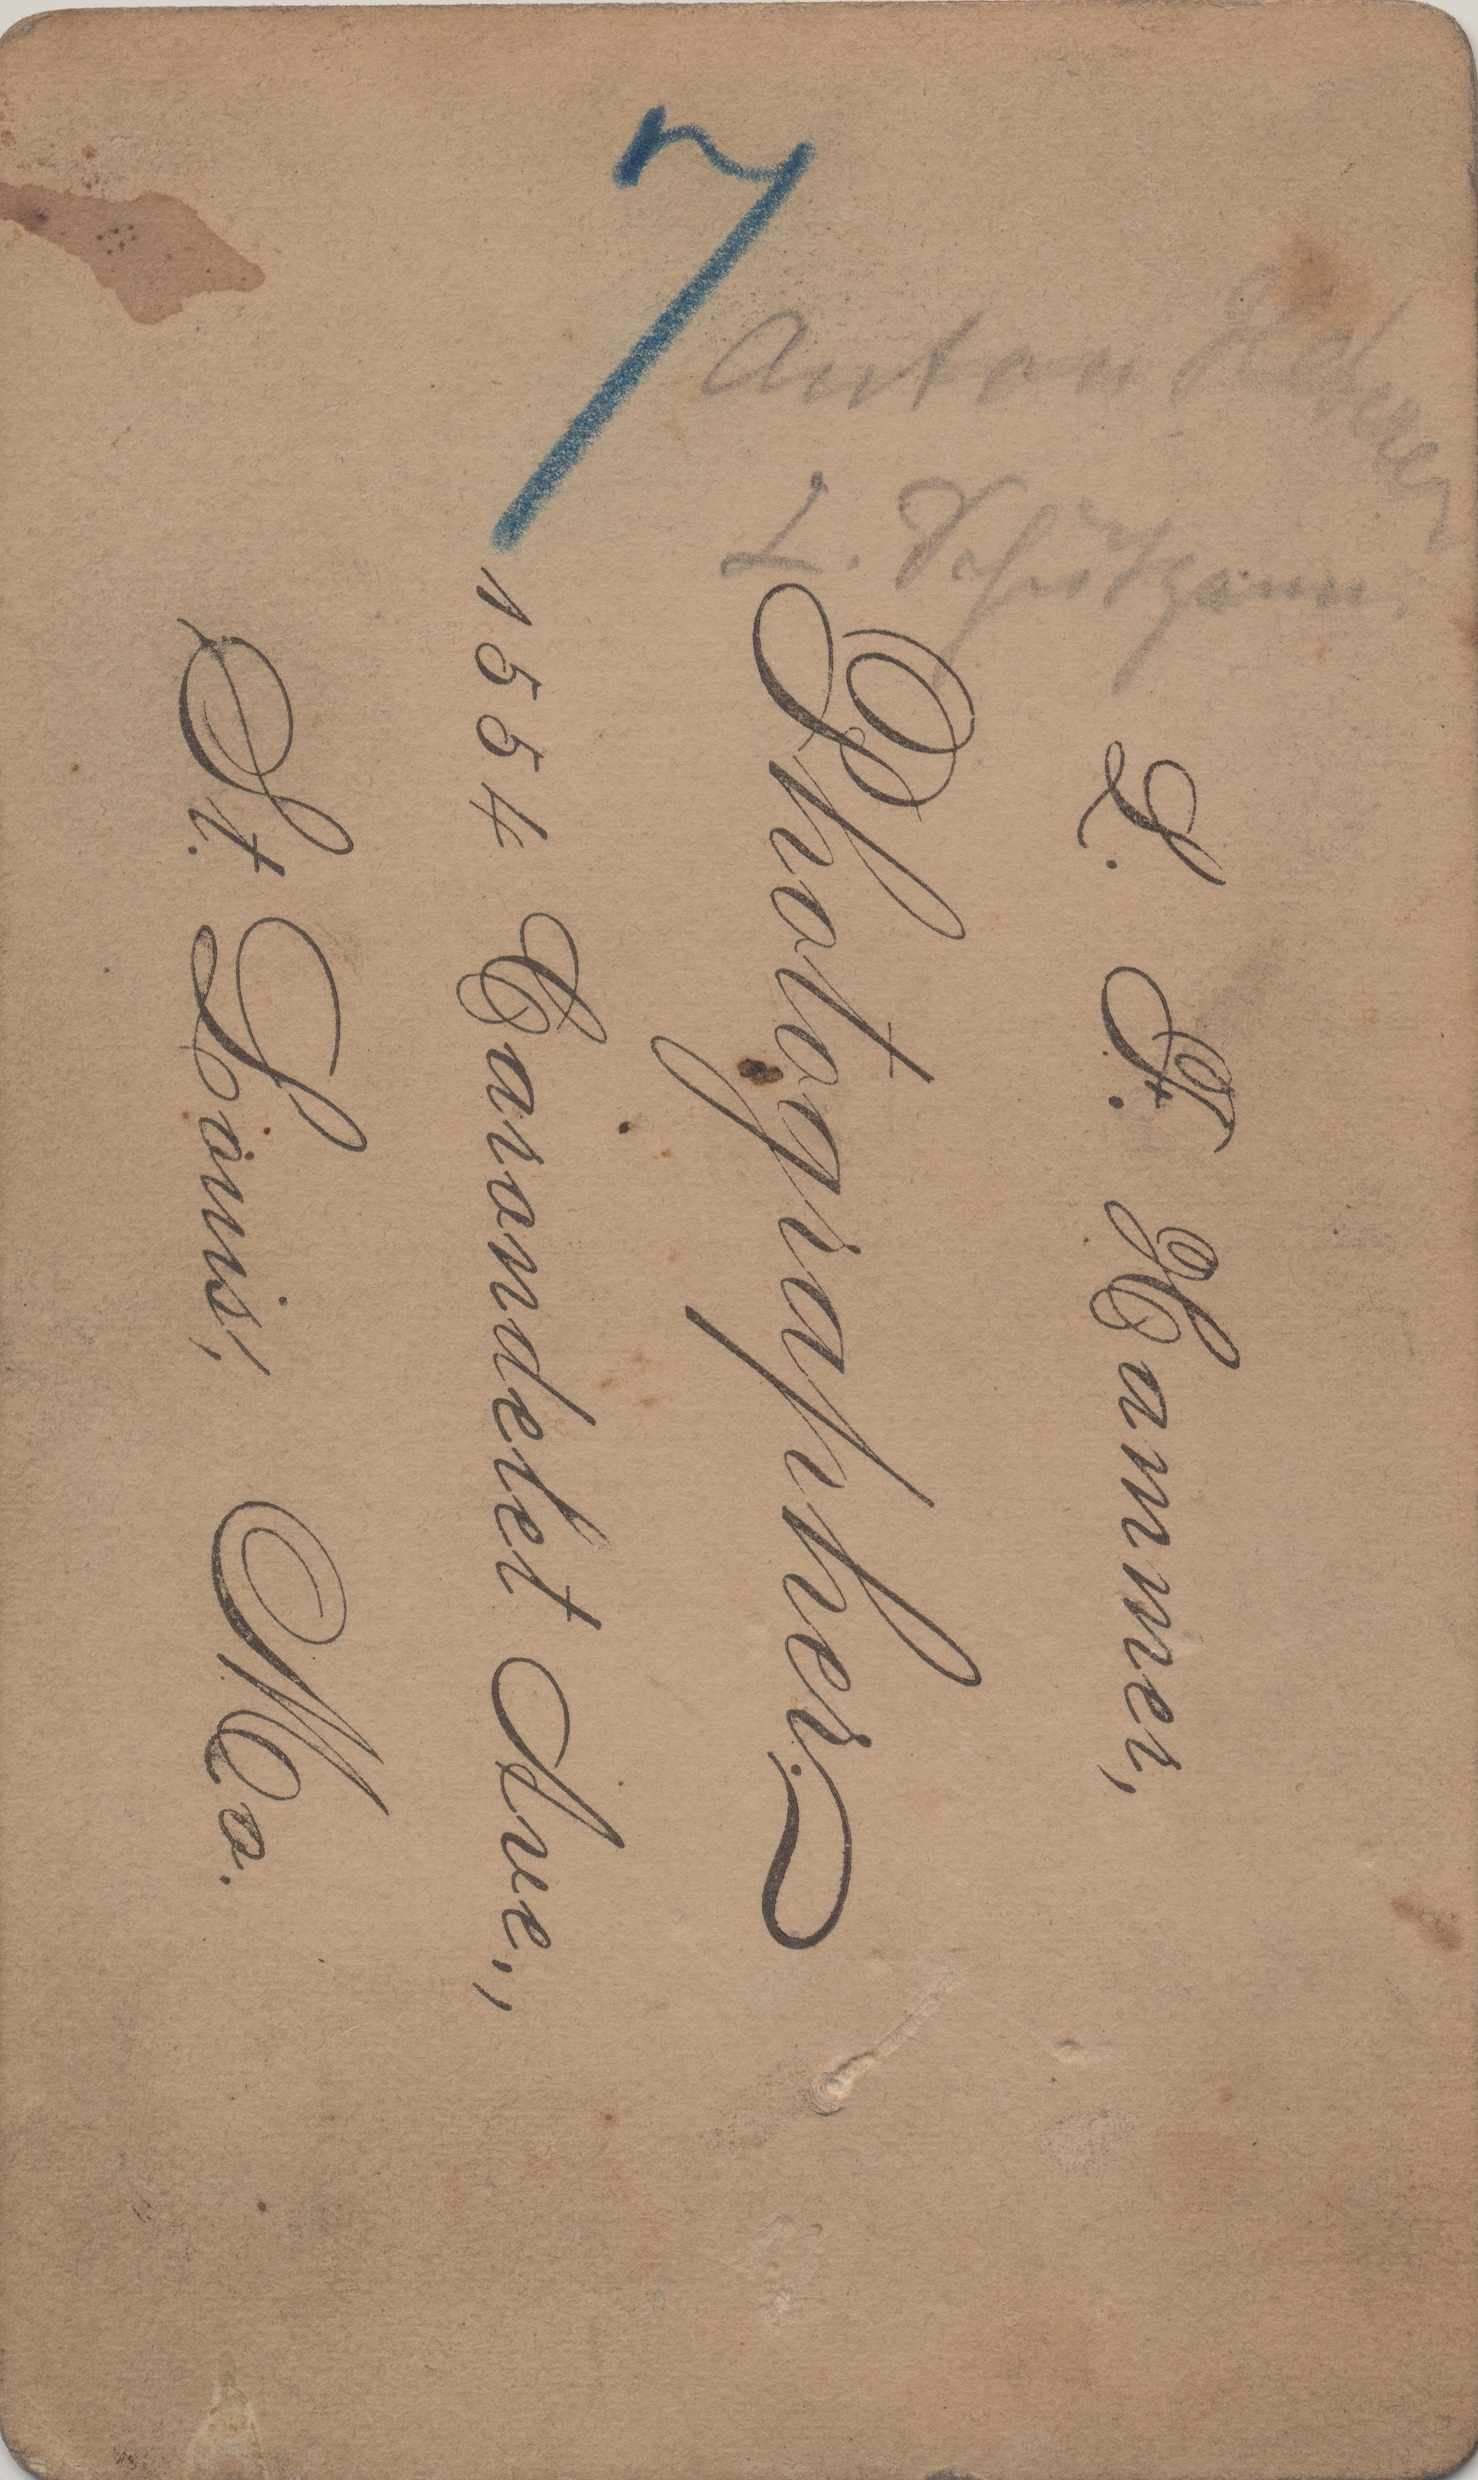 7
Anton
L.
L. F. Hammer,
Photographer.
1554 Carondelet Ave.,
St. Louis, Mo.